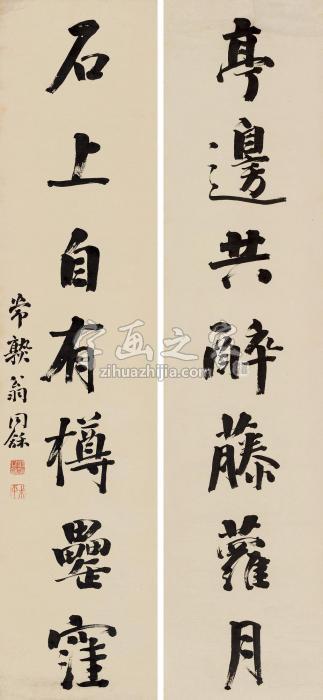 亭邊共醉藤蘿月
石上自有樽罍窪
常熟翁同龢
字画之家
zihuazhijia.com